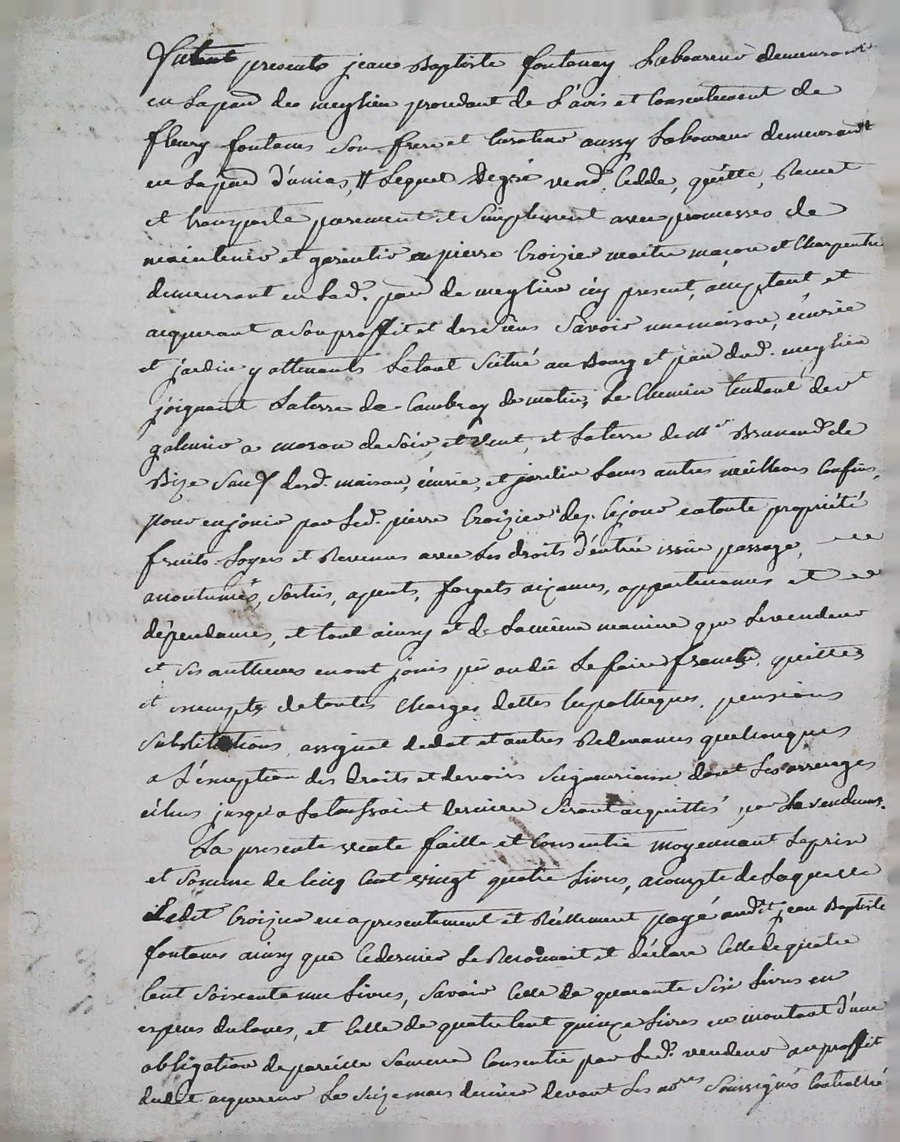 Fut présents jean Baptiste fontanay Laboureur demeurant
en La par de meylieu procedant de L'avis et Consentement de
fleury fontanes son frere et Curateur aussy Laboureur demeurant
en La par d'unias, Lequel de gré vend, Cedde, quitte, Remet
et transporte purement et Simplement avec promesses de
maintenir et garentir a pierre Croizier maitre maçon et Charpentier
demeurant en Lad. par de meylieu icy present, acceptant et
acquerant a Son proffit et des Siens Savoir une maison, écurie
et jardin y attenants Le tout Scitué au Bourg et par dud. meylieu
joignant La terre de Cambray de matin, Le Chemin tendant de St
galmier a de Soir, et vent, et La terre de Mr de
Bize Sauf desd. maison, écurie, et jardin Leurs autres meilleurs Confins,
pour en jouir par Led. pierre Croizier dez Cejour en toute propriété
fruits Loyers et Revenus avec Les droits d'entrée issüe passage,
accoutumés, Sorties, agents, forgets aizances, appartenances et
dépendances, et tout ainsy et de La même maniere que Le vendeur
et Ses autheurs en ont jouis pü ou dû Le faire franche, quittes
et exempts de toutes Charges dettes hypotheques, pensions
Substitutions, assignat de dot et autres Redevances quelconques
a L'exception des Droits et devoirs Seigneuriaux dont Les arrerages
échus jusqu'a La toussaint derniere Seront acquittés par Le vendeur.
La presente vente faitte et Consentie moyennant Le prix
et Somme de Cinq Cent vingt quatre Livres, acompte de Laquelle
Ledit Croizier en a presentement et Réellement payé audit jean Baptiste
fontanes ainsy que Ce dernier Le Reconnoit et déclare Celle de quatre
Cent Soixante une Livres, Savoir Celle de quarante Six Livres en
especes du Cours, et Celle de quatre Cent quinze Livres en montant d'une
obligation de pareille Somme Consentie par Led. vendeur au proffit
dudit acquereur Le Seize mars dernier devant Les nores Soussignés Controllée